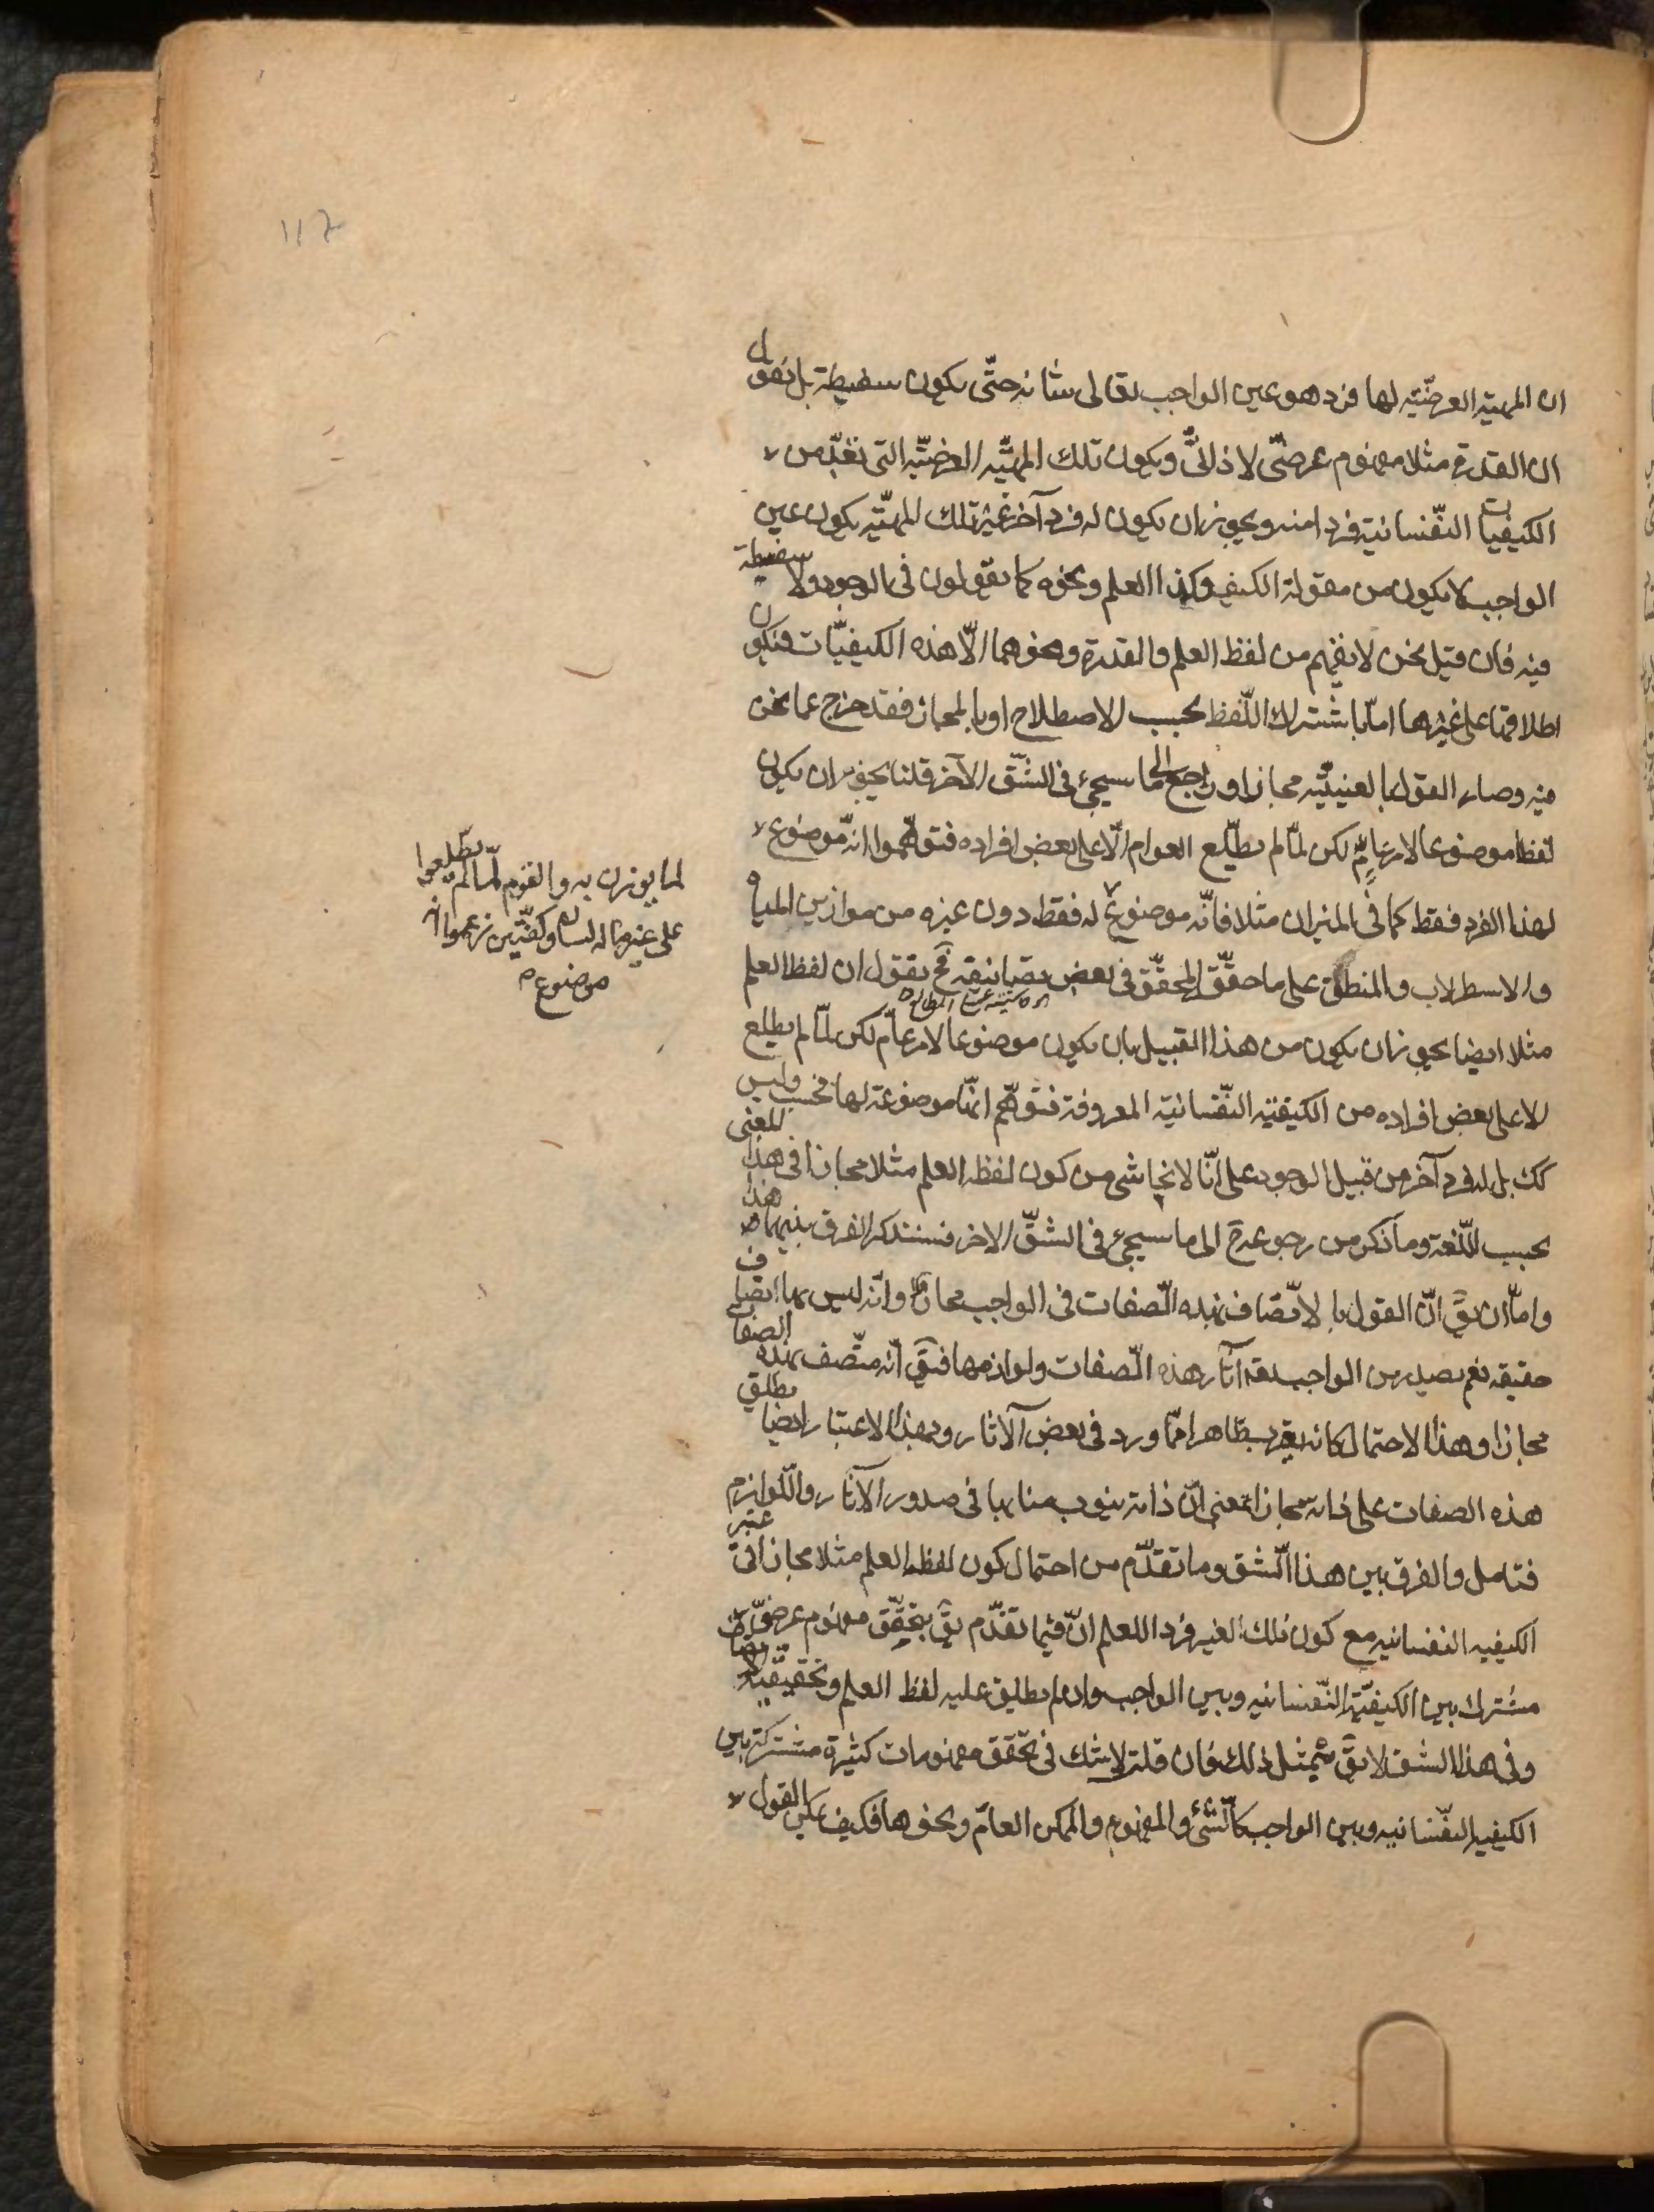 ان المهيّة العرضيّة لها فرد هو عين الواجب تعالى شانه حتّى يكون سفسطة بل نقول
ان القدرة مثلا مفهوم عرضىّ لا ذاتىّ ويكون تلك المهيّة العرضيّة التى تعدّ من
الكيفيات النّفسانية فردا منه ويجوز ان يكون له فرد آخر غير تلك المهيّة يكون عين
الواجب لا يكون من مقولة الكيف وكذا العلم ونحوه كما يقولون فى الوجود ولا سفسطة
فيه فان قيل نحن لا نفهم من لفظ العلم والقدرة ونحوهما الّا هذه الكيفيّات فيكون
اطلاقها على غيرها امّا باشتراك اللّفظ بحسب الاصطلاح او بالمجاز فقد خرج عما نحن
فيه وصار القول بالعينيّة مجازا وراجع الى ما سيجىء فى الشّق الآخر قلنا يجوز ان يكون
لفظا موضوعا لامر عامّ لكن لمّا لم يطّلع العوام الّا على بعض افراده فتوهّموا انّه موضوع
لهذا الفرد فقط كما فى الميزان مثلا فانّه موضوع له فقط دون غيره من موازين المياه
والاسطرلاب والمنطق على ما حقّق المحقّق فى بعض تصانيفه فح نقول ان لفظ العلم
مثلا ايضا يجوز ان يكون من هذا القبيل بان يكون موضوعا لامر عامّ لكن لمّا لم يطلع
الا على بعض افراده من الكيفيّة النّفسانيّة المعروفة فتوهّم انّها موضوعة لها فحسب وليس
كك بل له فرد آخر من قبيل الوجود على انّا لا نحاشى من كون لفظ العلم مثلا مجازا فى هذا المعنى
بحسب اللّغة وما ذكر من رجوعه ح الى ما سيجىء فى الشّق الاخر فسنذكر الفرق بينهما هذا
وامّا ان يقّ انّ القول بالاتّصاف بهذه الصّفات فى الواجب مجاز وانّه ليس بها اتصاف
حقيقه نعم يصدر من الواجب تعه آثار هذه الصّفات ولوازمها فيقّ انّه متّصف بهذه الصفات
مجازا وهذا الاحتمال كانه يقرب ظاهرا ممّا ورد فى بعض الآثار وبهذا الاعتبار ايضا يطلق
هذه الصفات على ذاته مجازا بمعنى انّ ذاته ينوب منابها فى صدور الآثار واللّوازم
فتامل والفرق بين هذا الشّق وما تقدّم من احتمال كون لفظ العلم مثلا مجازا فى غير
الكيفيه النفسانيه مع كون ذلك الغير فردا للعلم انّ فيما تقدّم يقّ بتحقّق مفهوم عرضىّ
مشترك بين الكيفيّة النّفسانيه وبين الواجب وان لم يطلق عليه لفظ العلم
وفى هذا الشق لا يقّ بمثل ذلك فان قلت لا شك فى تحّقق مفهومات كثيرة مشتركة بين
الكيفية النفّسانيه وبين الواجب كالشّىء والمفهوم والممكن العامّ ونحوها فكيف يمكن القول
لما يوزن به والقوم لمّا لم يطّلعوا
على غير ما له لسان وكفّتين زعموا انه
موضوع